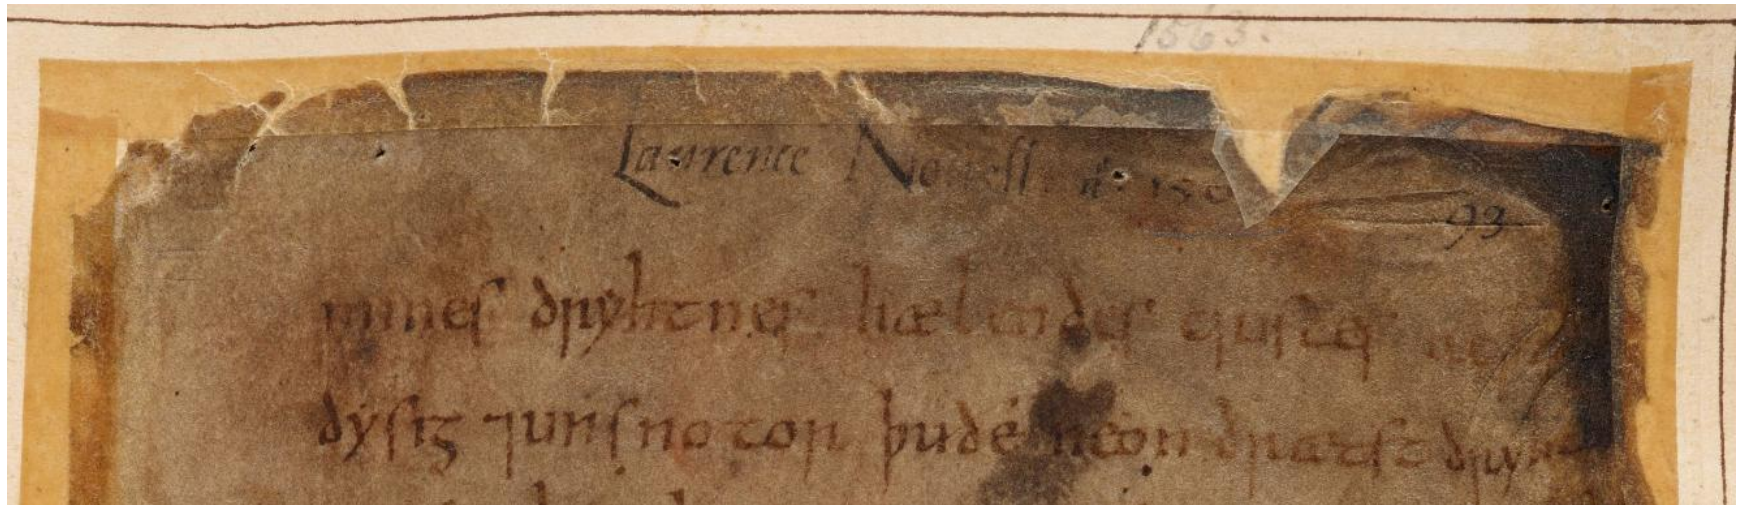 1563.
Laurence Nouell a° 15
93
mines dryhtnes hælendes cristes
dysig ⁊ unsnotor þu ðe ne ondrætst